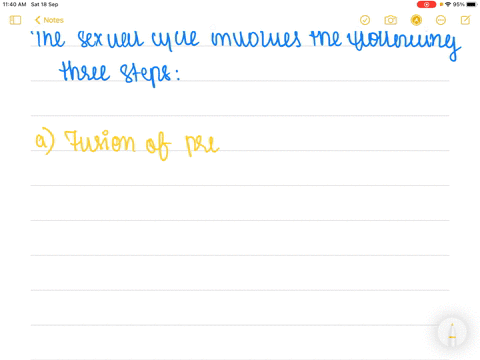 11:40 AM Sat 18 Sep
95%
Notes
The sexual cycle involves the following
three steps:
a) Fusion of pre